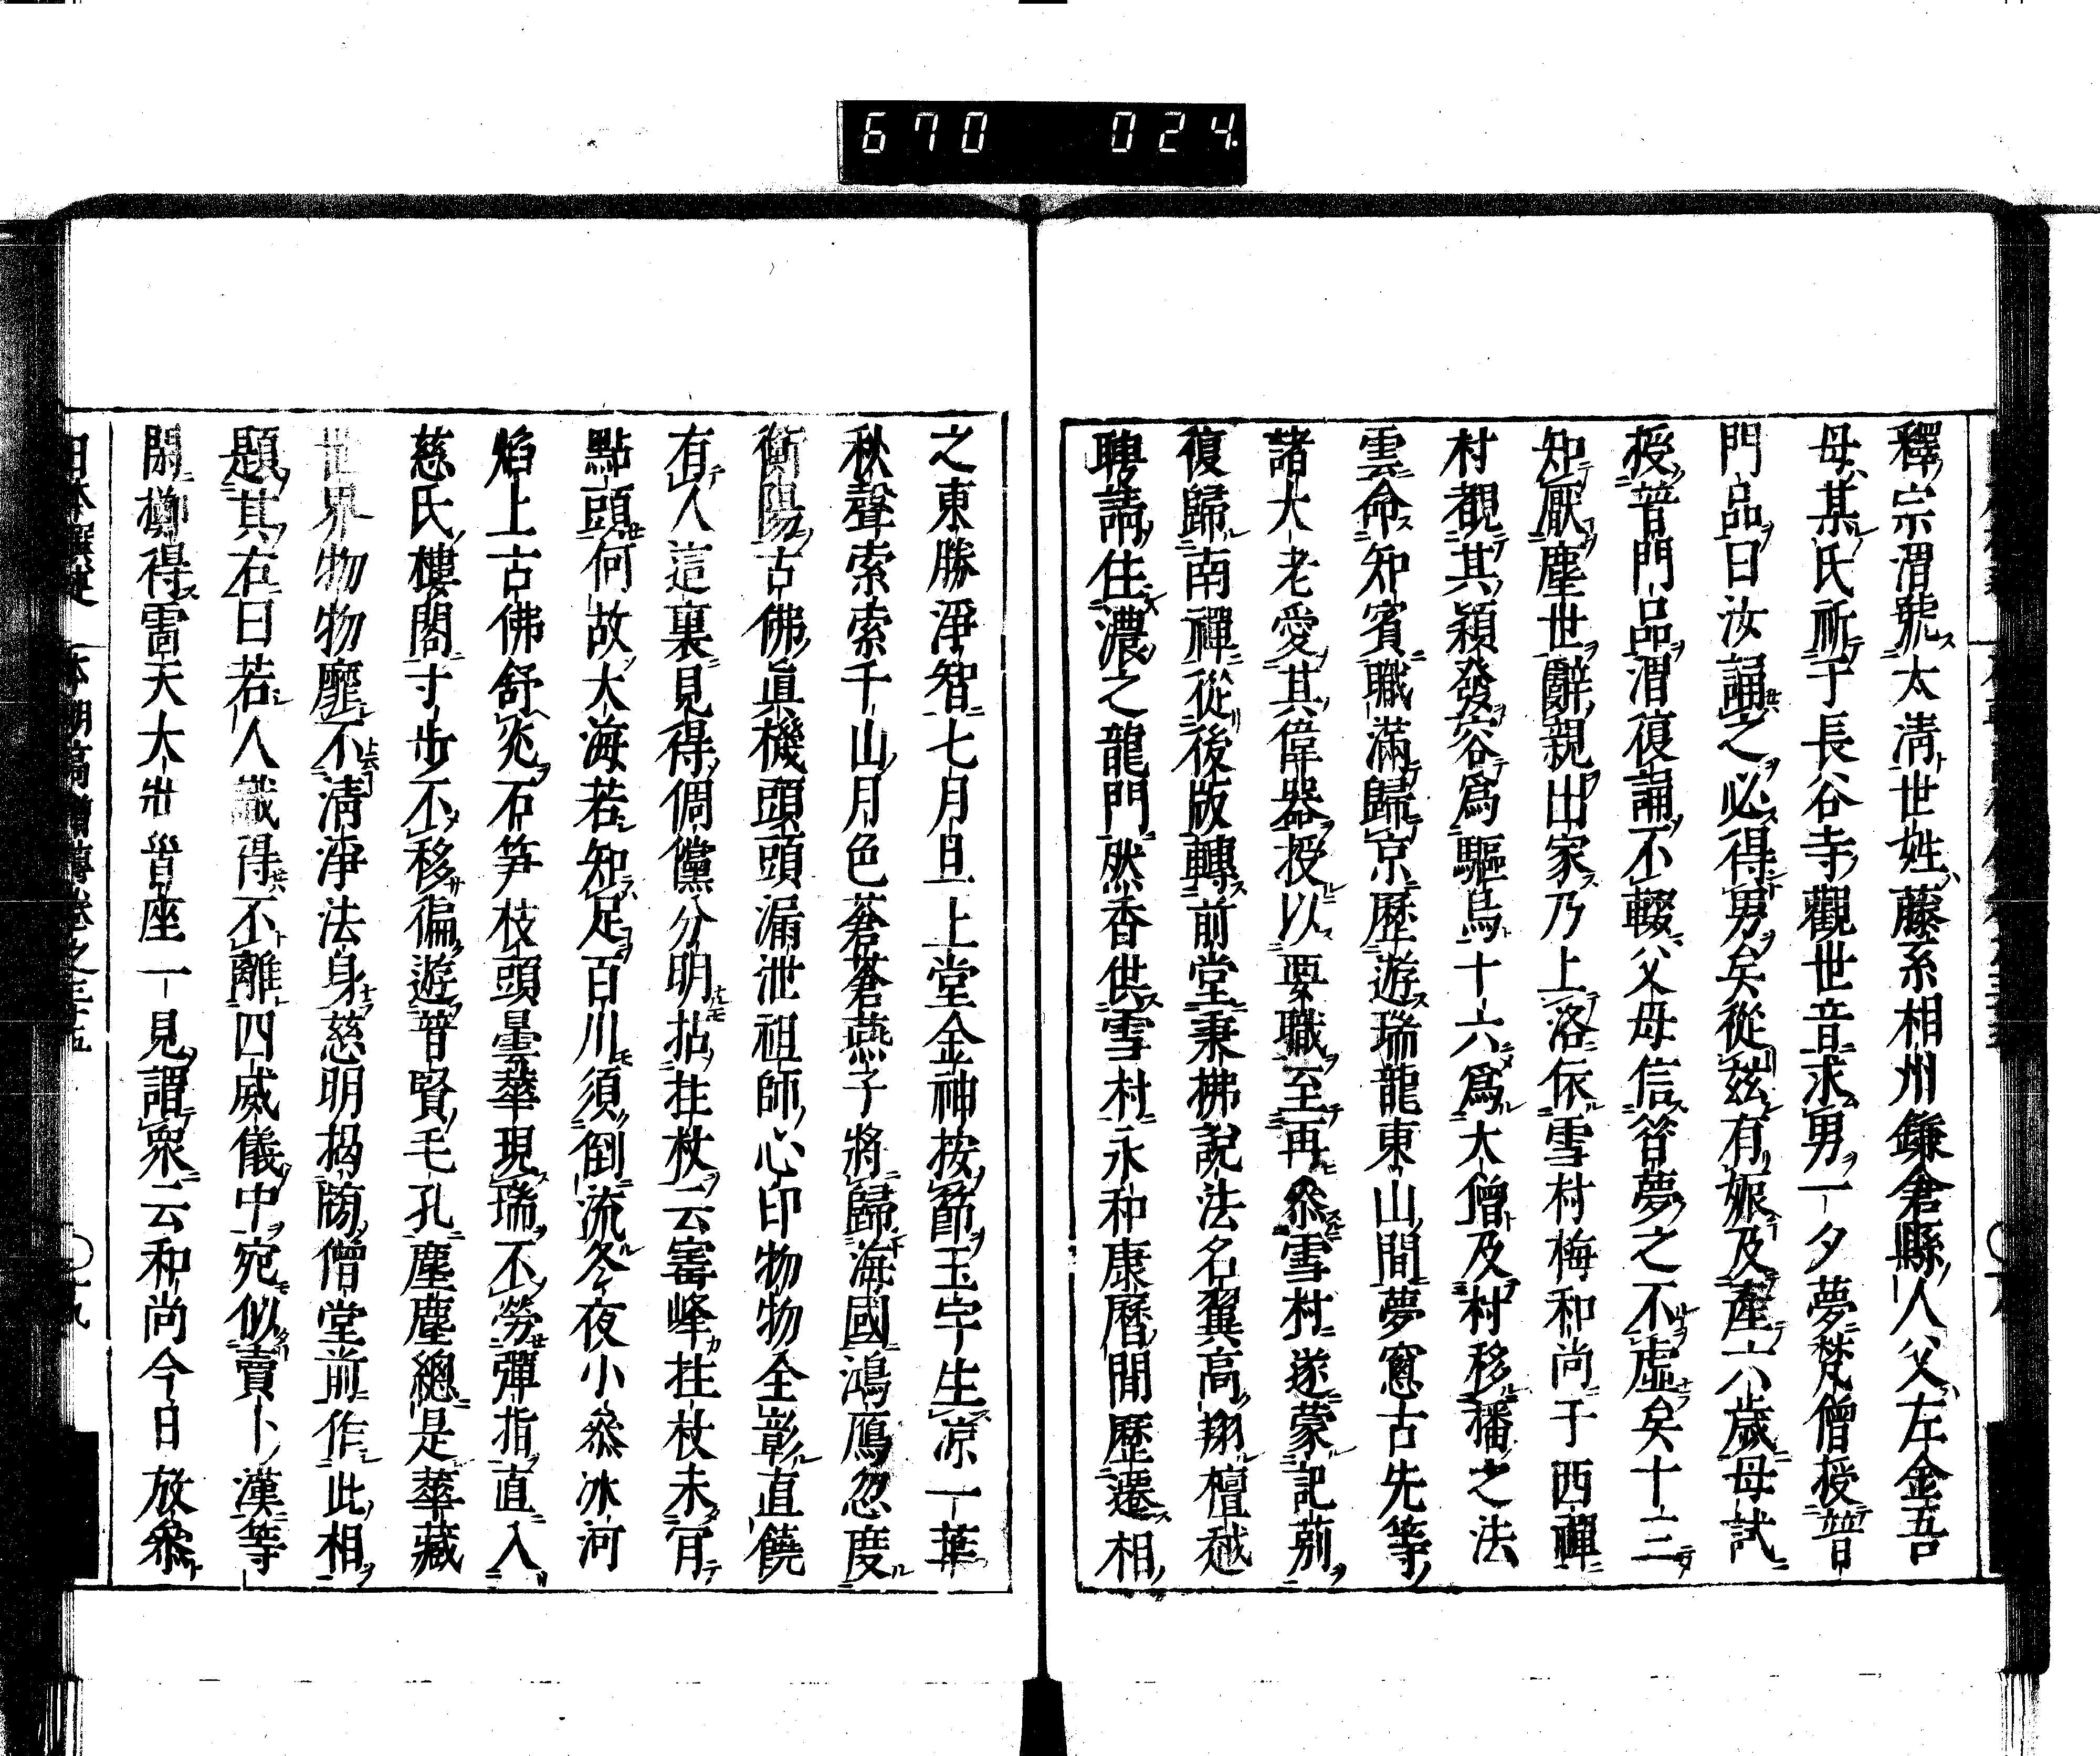 670 024
釋宗渭號太清世姓藤系相州鎌倉縣人父左金吾
母某氏祈于長谷寺觀世音求男一夕夢梵僧授普
門品曰汝誦之必得男矣從茲有娠及產六歲母試
授普門品渭復誦不輟父母信符夢之不虛矣十三
知厭塵世辭親出家乃上洛依雪村梅和尚于西禪
村觀其穎發容爲驅烏十六爲大僧及村移播之法
雲命知賓職滿歸京歷遊瑞龍東山間夢窓古先等
諸大老愛其偉器授以要職至再參雪村遂蒙記莂
復歸南禪從後版轉前堂秉拂說法名翼高翔檀越
聘請住濃之龍門爇香供雪村永和康曆間歷遷相
之東勝淨智七月旦上堂金神按節玉宇生凉一葉
秋聲索索千山月色蒼蒼燕子將歸海國鴻鴈忽度
衡陽古佛眞機頭頭漏泄祖師心印物物全彰直饒
有人這裏見得倜儻分明拈拄杖云窨峰拄杖未肯
點頭何故大海若知足百川須倒流冬夜小參冰河
焰上古佛舒光石笋枝頭曇華現瑞不勞彈指直入
慈氏樓閣寸步不移徧遊普賢毛孔塵塵總是華藏
世界物物靡不清淨法身慈明揭牓僧堂前作此相
題其右曰若人識得不離四威儀中宛似賣卜漢等
閑擲得雷天大壯首座一見謂衆云和尚今日放參
日本 本朝高僧傳卷之三十五 〇十九